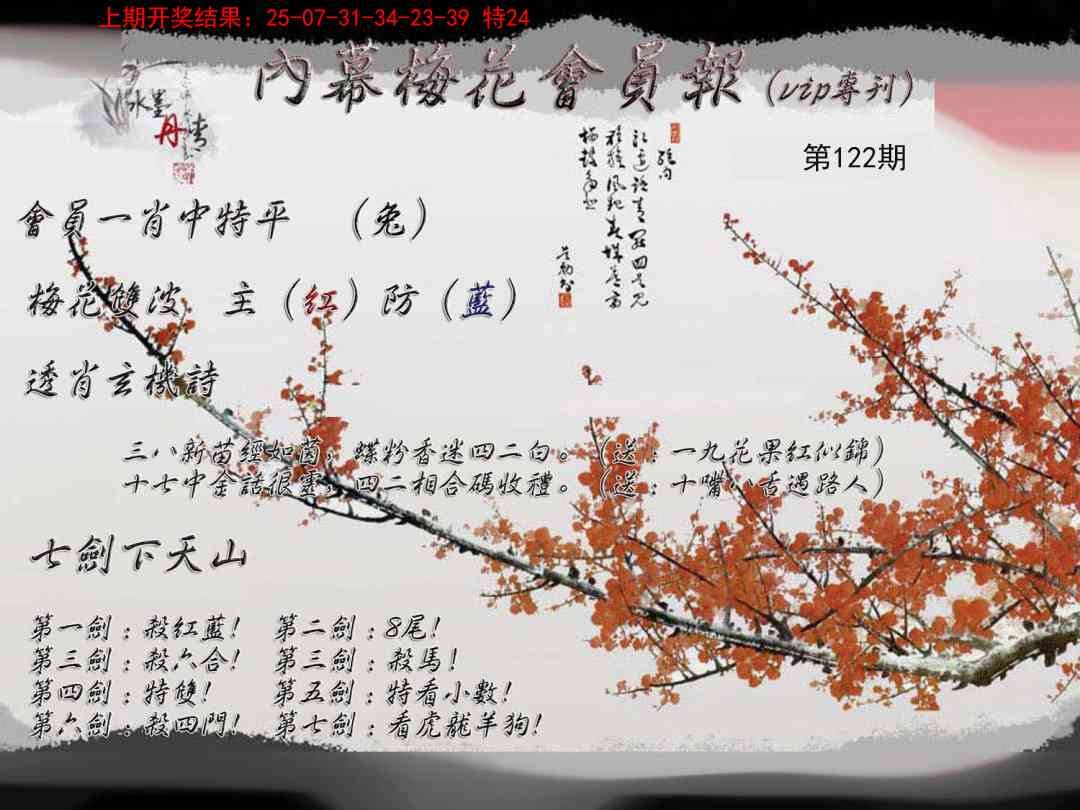 上期开奖结果：25-07-31-34-23-39 特24
內幕梅花會員報（vip專刊）
水墨
丹青
第122期
會員一肖中特平 （兔）
梅花雙波 主（紅）防（藍）
透肖玄機詩
三八新苗經如茵，蝶粉香迷四二白。（送：一九花果紅似錦）
十七中金話很靈，四二相合碼收禮。（送：十嘴八舌遇路人）
七劍下天山
第一劍：殺紅藍！ 第二劍：8尾！
第三劍：殺六合！ 第三劍：殺馬！
第四劍：特雙！ 第五劍：特看小數！
第六劍：殺四門！ 第七劍：看虎龍羊狗！